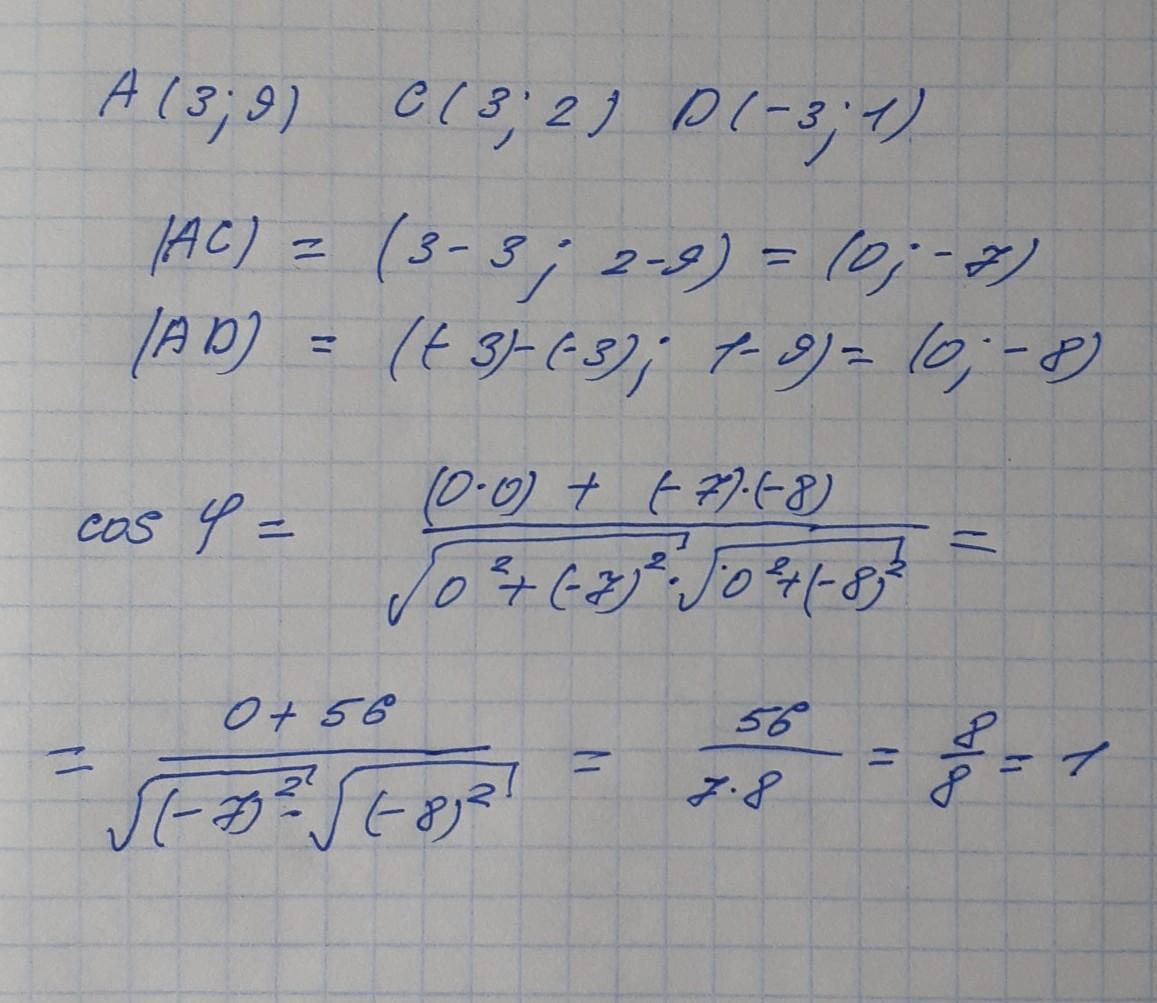 A(3;9) C(3;2) D(-3;1)
|AC) = (3-3; 2-9) = (0;-7)
|AD) = ((-3)-(-3); 1-9) = (0;-8)
cos φ = ((0·0) + (-7)·(-8))/(√(0²+(-7)²)·√(0²+(-8)²)) =
= (0+56)/(√((-7)²)·√((-8)²)) = 56/(7·8) = 8/8 = 1